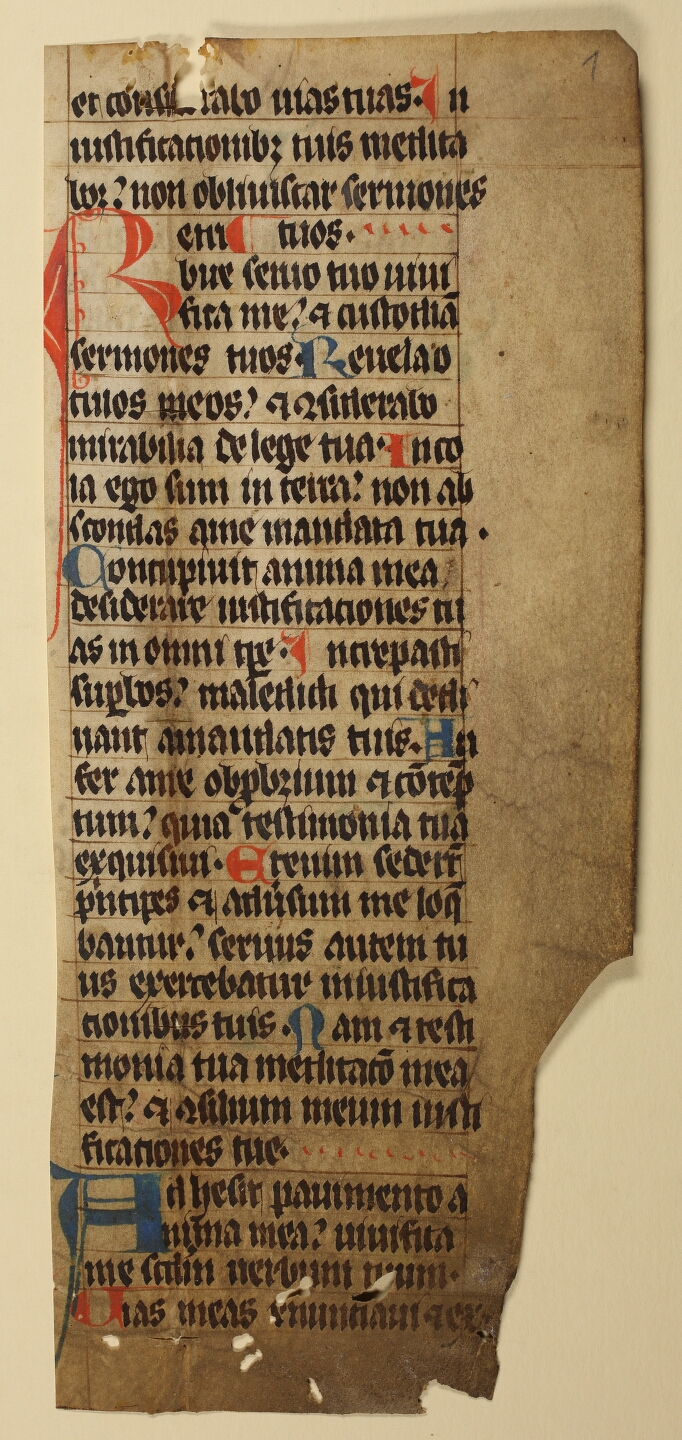 1
et considerabo uias tuas. In
iustificationibꝫ tuis medita
bor? non obliuiscar sermones
tuos.
Retri
bue seruo tuo uiui
fica me? ⁊ custodiā
sermones tuos. Reuela o
culos meos? ⁊ ꝯsiderabo
mirabilia de lege tua. Inco
la ego sum in terra? non ab
scondas a me mandata tua.
Concupiuit anima mea
desiderare iustificationes tu
as in omni tꝑe. Increpasti
suꝑbos? maledicti qui decli
nant a mandatis tuis. Au
fer a me obꝓbrium ⁊ cōtēp
tum? quia testimonia tua
exquisiui. Etenim sederūt
prīcipes ⁊ adūsum me loq̄
bantur? seruus autem tu
us exercebatur in iustifica
tionibus tuis. Nam ⁊ testi
monia tua meditatō mea
est? ⁊ ꝯsilium meum iusti
ficationes tue.
Adhesit pauimento a
nima mea? uiuifica
me scdm uerbum tuum.
Uias meas enuntiaui ⁊ ex